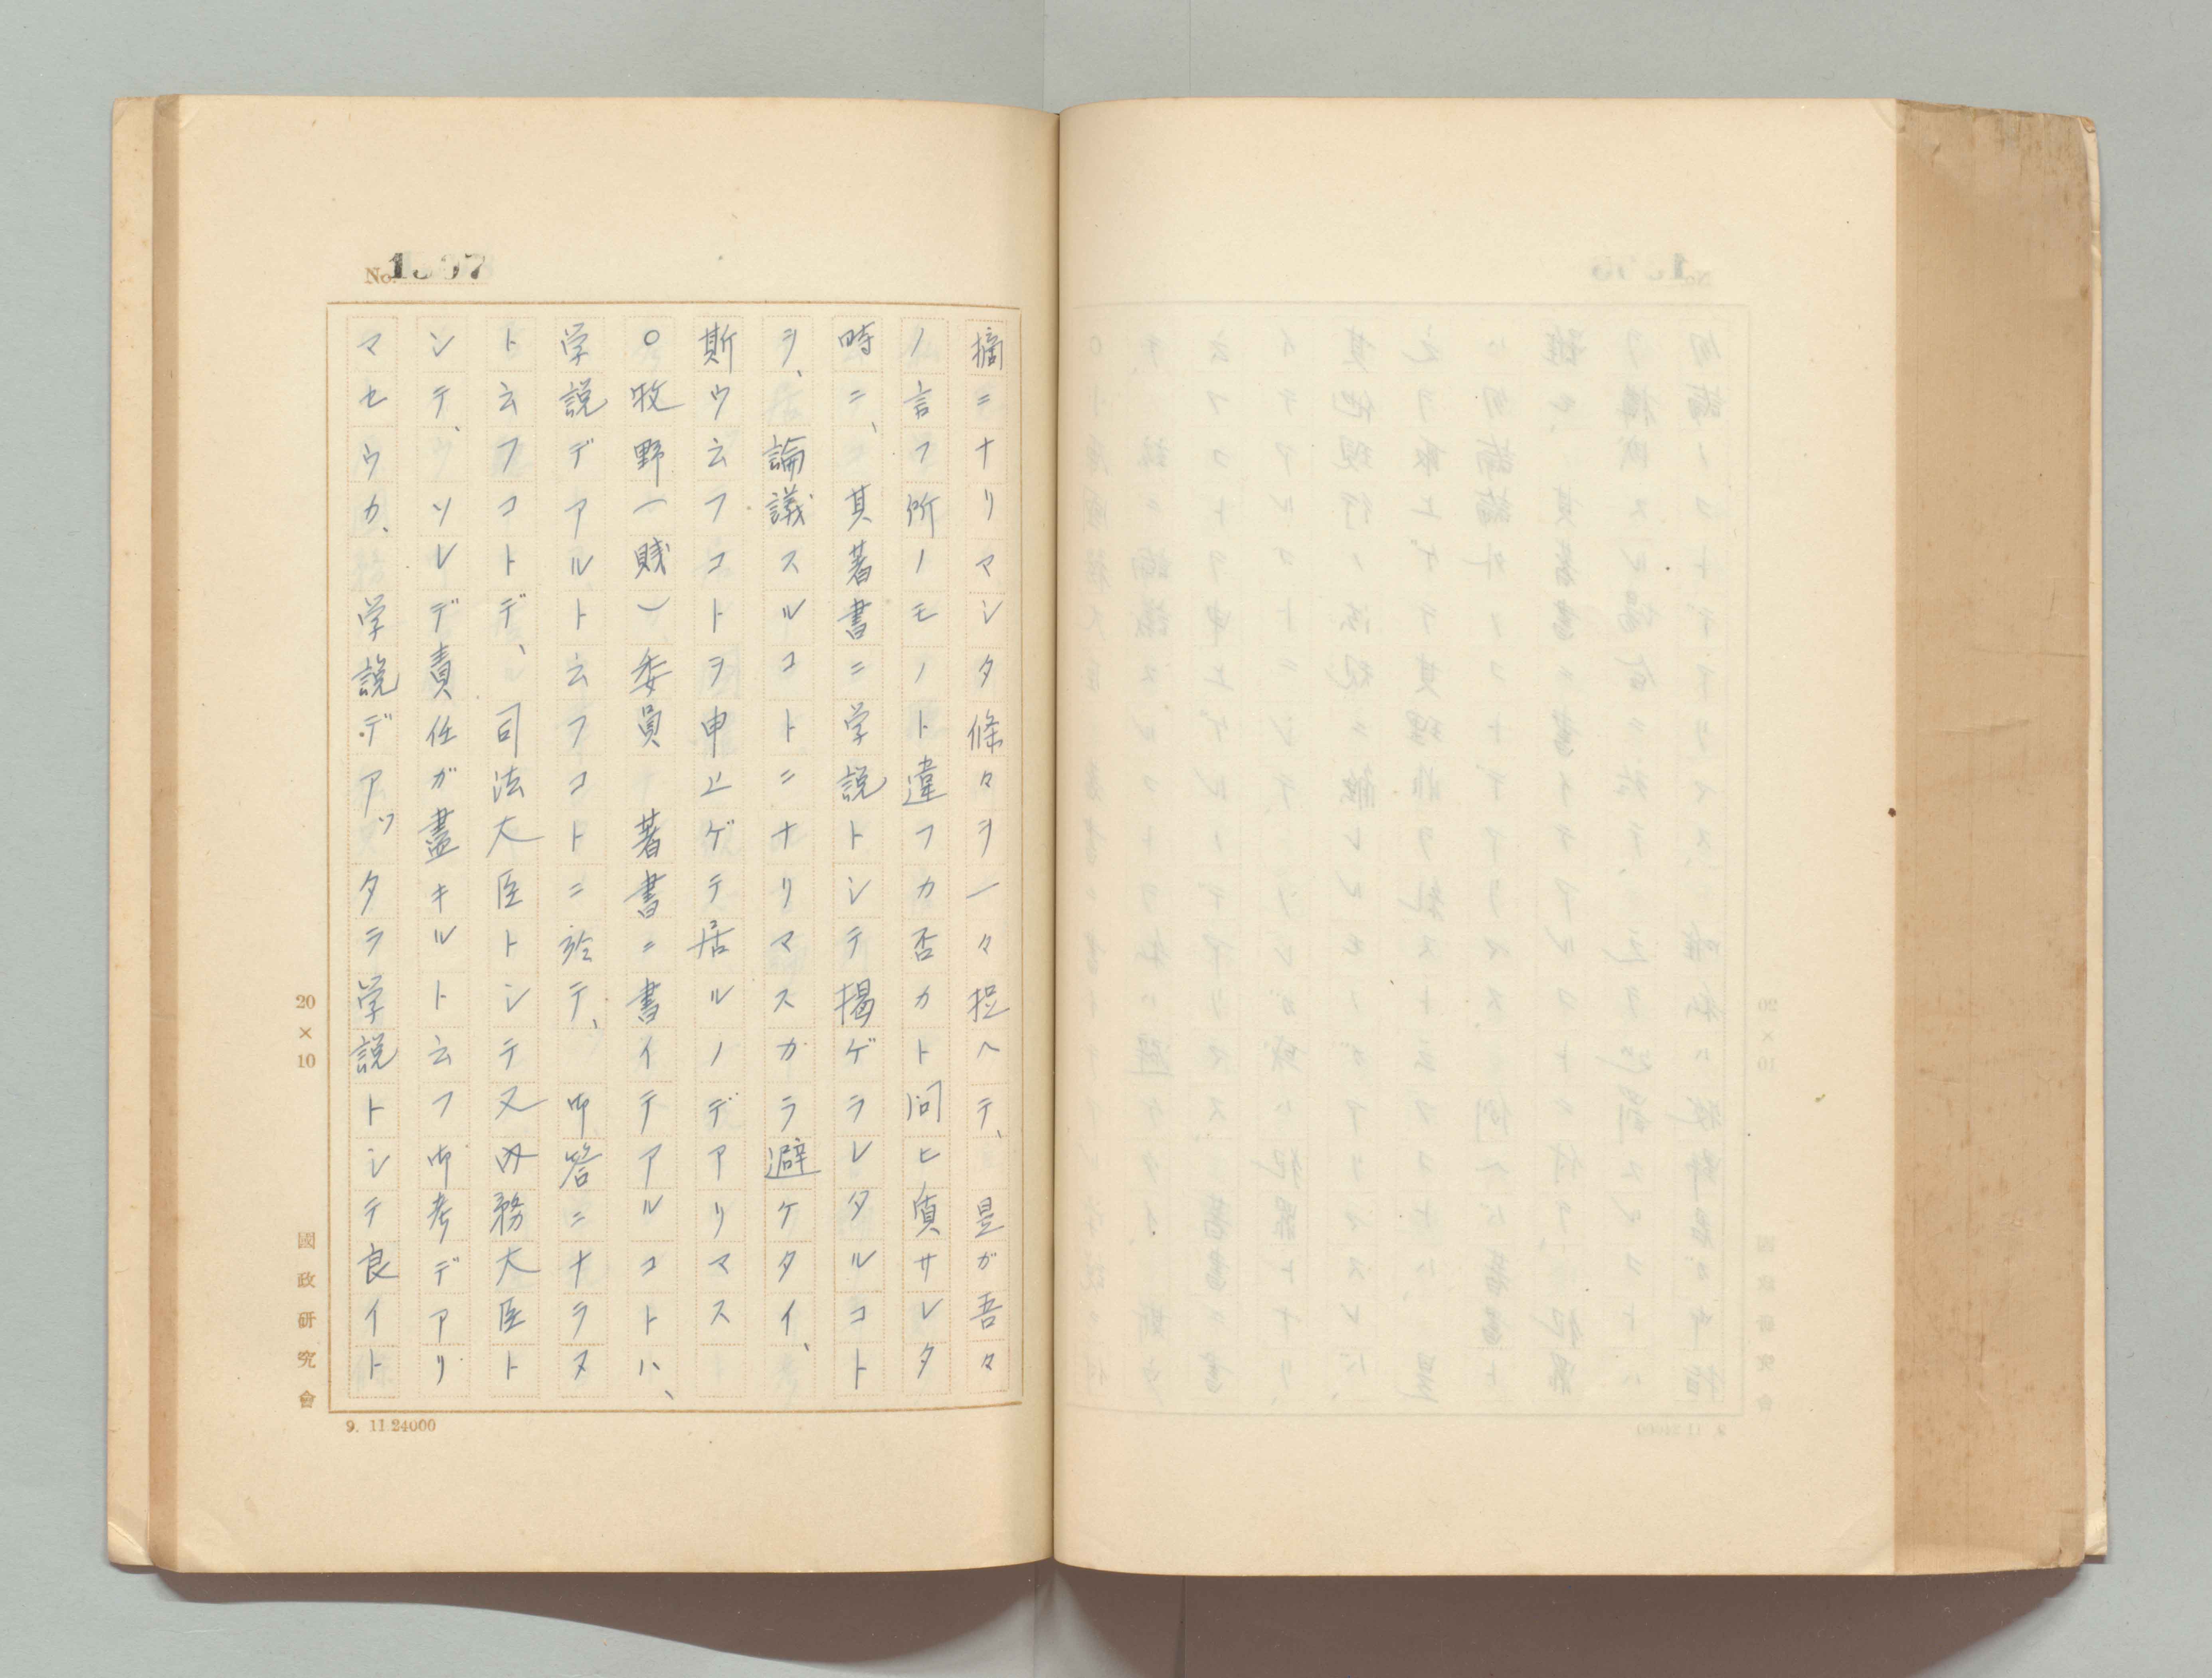 No. 1397
摘ニナリマシタ條々ヲ一々捉ヘテ、是ガ吾々
ノ言フ所ノモノト違フカ否カト問ヒ質サレタ
時ニ、其著書ニ学説トシテ掲ゲラレタルコト
ヲ、論議スルコトニナリマスカラ避ケタイ、
斯ウ云フコトヲ申上ゲテ居ルノデアリマス
〇牧野(賤)委員 著書ニ書イテアルコトハ、
学説デアルト云フコトニ於テ、御答ニナラヌ
ト云フコトデ、司法大臣トシテ又内務大臣ト
シテ、ソレデ責任ガ盡キルト云フ御考デアリ
マセウカ、学説デアッタラ学説トシテ良イト
20×10
國政研究會
9. 11 24000